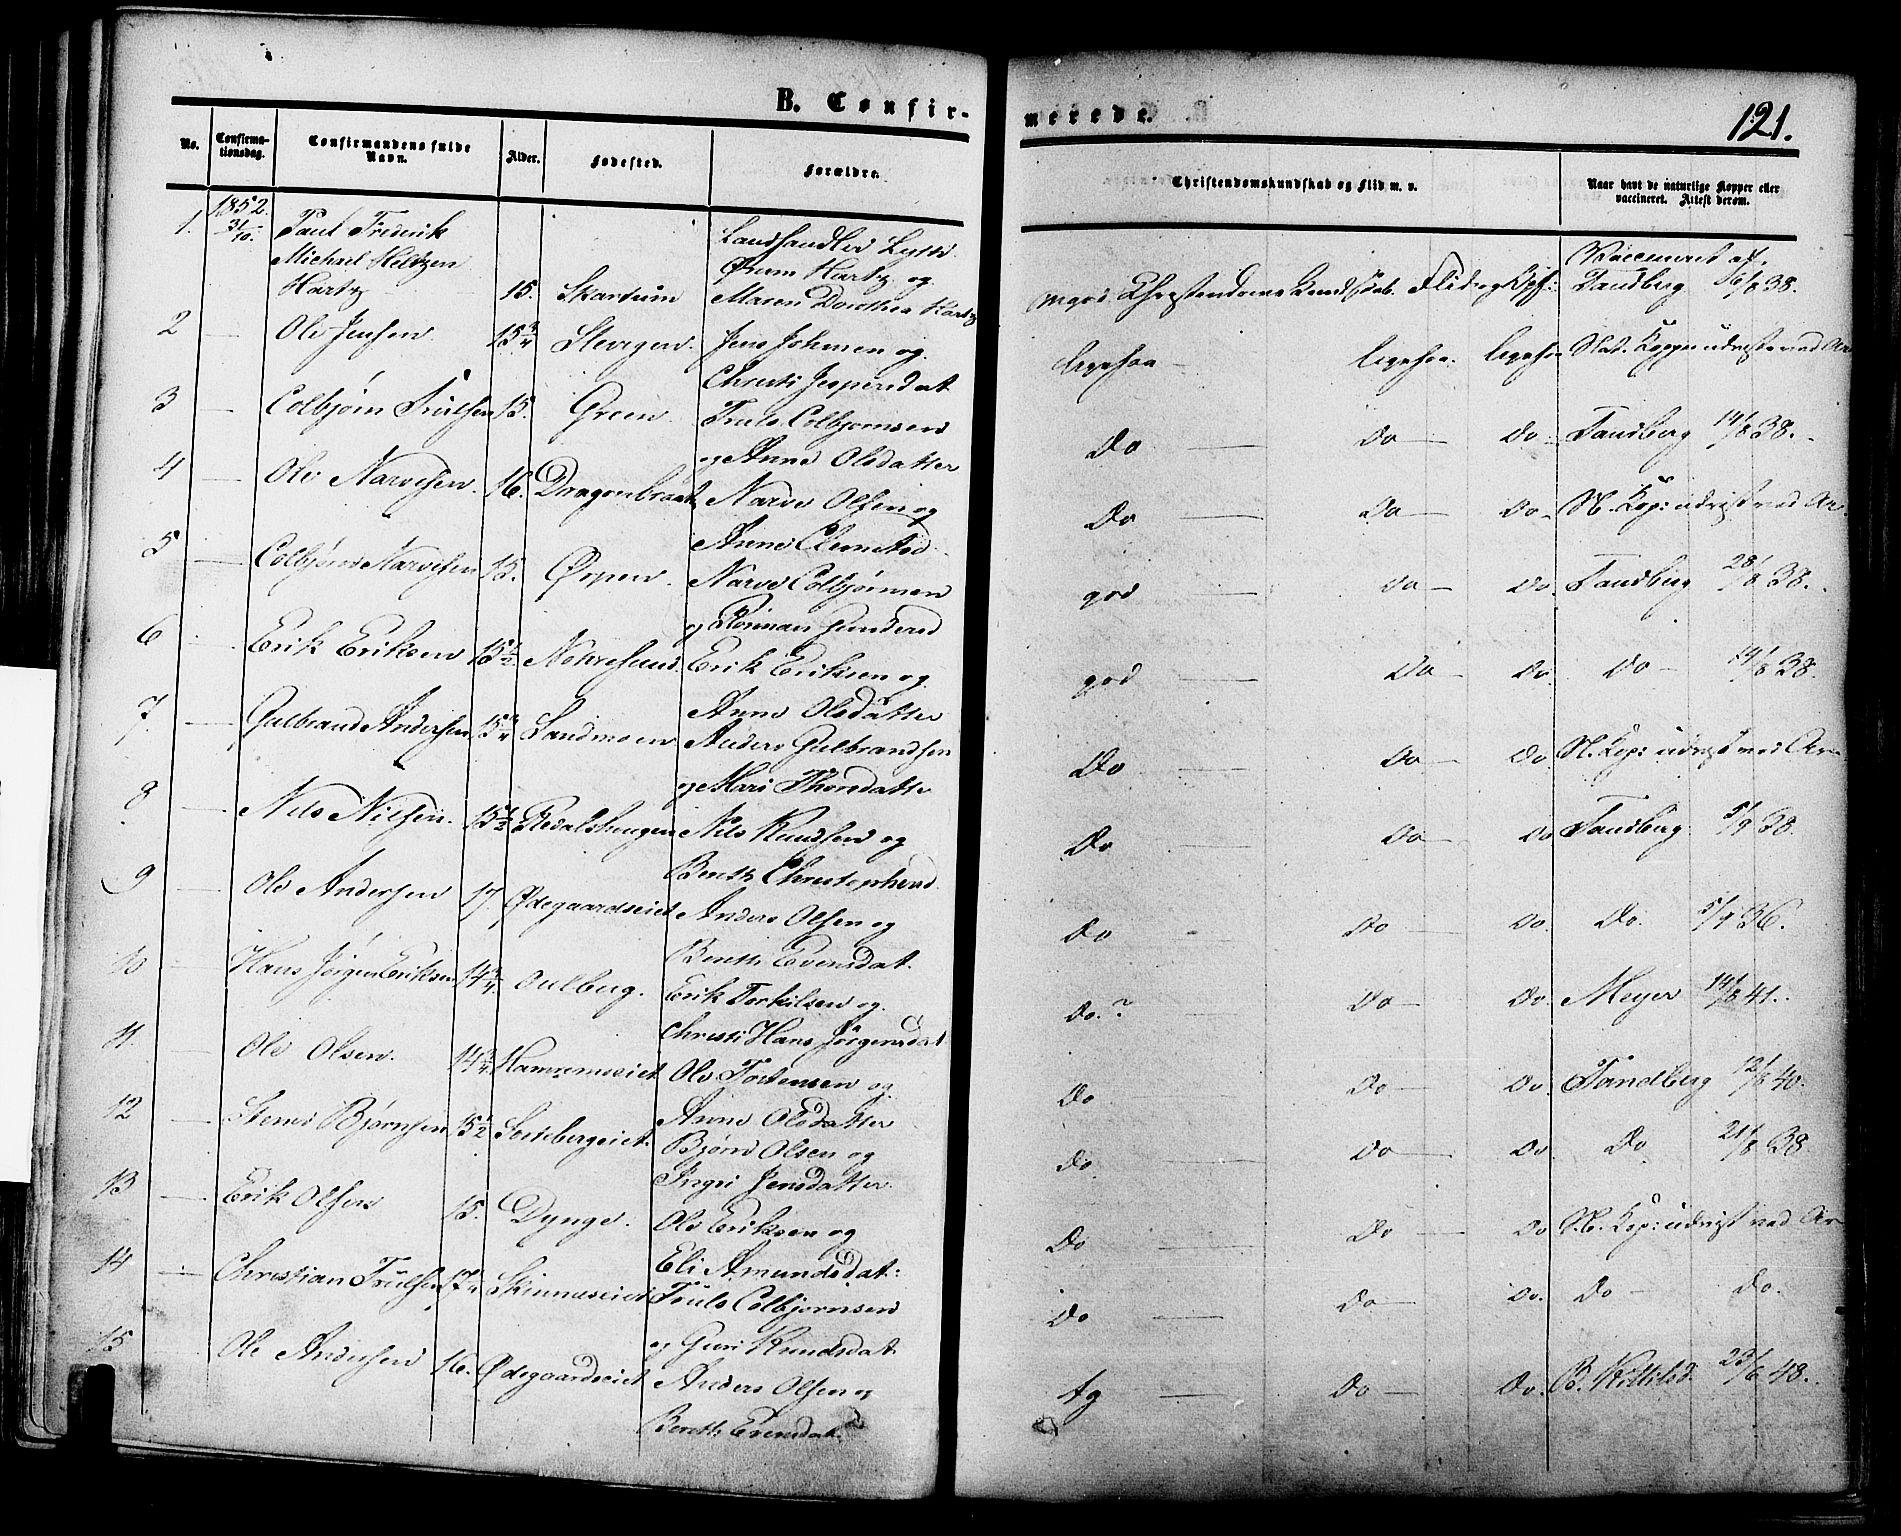 B. Confirmerede.
121.
No.
Confirmationsdag.
Confirmandens fulde Navn.
Alder.
Fødested.
Forældre.
Christendomskundskab og Flid m. v.
Naar havt de naturlige Kopper eller vaccineret. Attest derom.
1852.
1. 31/10. Paul Frederik
Michael Heltzen
Hartz 15. Skartum
Landhandler
Ørum Hartz og
Maren Dorthea Hartz
mgod Christendoms Kundskab. Flid og
Vaccineret af
Tandberg 16/8 38.
2 Ole Jensen. 15 3/4 Jens Johnsen og
Christi Jespersdat
ligesaa ligesaa. ligesaa Nat. Kopper udvist ved Ar
3 — Colbjørn Trulsen 15. Green. Truls Colbjørnsen
og Anne Olsdatter
Do — Do — Do. Tandberg 14/8 38.
4 — Ole Narvesen. 16. Dragonbraat Narve Olsen og
Anne
Do — Do — Do. N. Kop: udvist ved Ar.
5 — Colbjørn Narvesen 15. Ørpen. Narve Colbjørnsen
og Rønnau Gundersd
god — Do — Do. Tandberg 28/8 38.
6 Erik Eriksen 15 1/2 Erik Eriksen og
Anne Olsdatter
god — Do — Do. Do — 14/8 38.
7. — Gulbrand Andersen 15 3/4 Sandmoen Anders Gulbrandsen
og Mari Thorsdatter
Do — Do — Do. N. Kop: udvist ved Ar
8 — Nils Nilsen. 15 1/2 Nils Knudsen og
Bereth Christophersd
Do — Do — Do Tandberg 5/9 38.
9 — Ole Andersen 17. Ødegaardseiet Anders Olsen og
Bereth Evensdat.
Do — Do — Do. Do. 5/7 36.
10 — Hans Jørgen Eriksen 14 3/4 Oulberg. Erik Torkilsen og
Christi Hans Jörgensdat
Do.? Do — Do. Meyer 14/8 41.
11 — Ole Olsen. 14 3/4 Hamremseiet Ole Tostensen og
Anne Olsdatter
Do Do — Do. Tandberg 12/8 40.
12 — Bjørnsen 15 1/2 Bjørn Olsen og
Ingri Jensdatter
Do — Do — Do. Do 21/8 38
13 — Erik Olsen 15. Dynge. Ole Eriksen og
Eli Amundsdat:
Do — Do — Do N. Kop: udvist ved Ar
14 — Christian Trulsen 17 Skinneseiet Truls Colbjørnsen
og Guri Knudsdat.
Do — Do — Do. Do — Do.
15 — Ole Andersen 16. Ødegaardseiet Anders Olsen og
Bereth Evensdat.
tg — Do — Do. B. Kittilsd. 23/6 48.